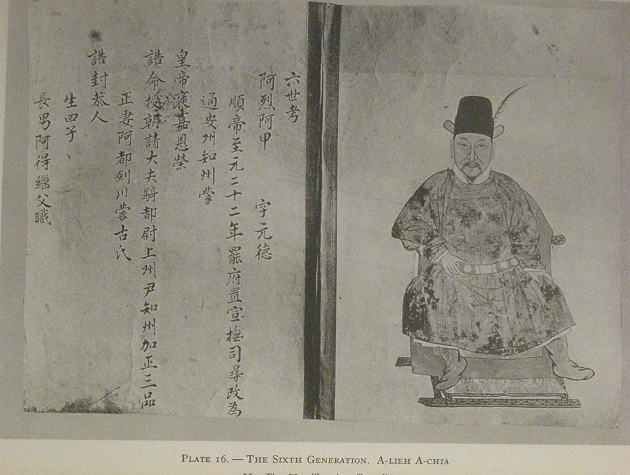 六世考
阿烈阿甲 字元德
順帝至元二十二年罷府置宣撫司尋改為
通安州知州蒙
皇帝褒嘉恩榮
誥命授朝請大夫騎都尉上州尹知州加正三品
正妻阿都劍川蒙古氏
誥封恭人
生四子
長男阿得繼父職
PLATE 16.—THE SIXTH GENERATION. A-LIEH A-CHIA